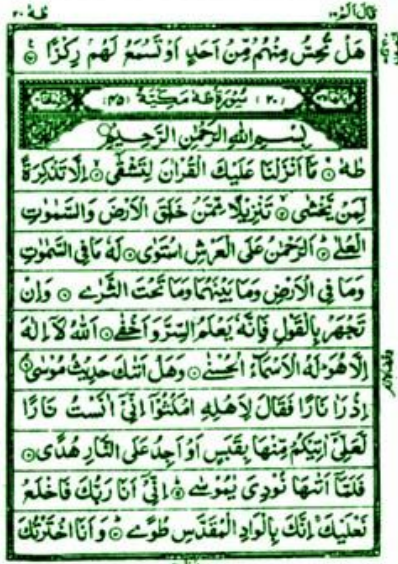 قال الم ١٦ طه ٢٠
هَلْ تُحِسُّ مِنْهُمْ مِّنْ اَحَدٍ اَوْ تَسْمَعُ لَهُمْ رِكْزًا
(٢٠) سُوْرَةُ طٰهٰ مَكِّيَّةٌ (٤٥)
بِسْمِ اللهِ الرَّحْمٰنِ الرَّحِيْمِ
طٰهٰ مَآ اَنْزَلْنَا عَلَيْكَ الْقُرْاٰنَ لِتَشْقٰٓى اِلَّا تَذْكِرَةً
لِّمَنْ يَّخْشٰى تَنْزِيْلًا مِّمَّنْ خَلَقَ الْاَرْضَ وَالسَّمٰوٰتِ
الْعُلٰى اَلرَّحْمٰنُ عَلَى الْعَرْشِ اسْتَوٰى لَهٗ مَا فِى السَّمٰوٰتِ
وَمَا فِى الْاَرْضِ وَمَا بَيْنَهُمَا وَمَا تَحْتَ الثَّرٰى وَاِنْ
تَجْهَرْ بِالْقَوْلِ فَاِنَّهٗ يَعْلَمُ السِّرَّ وَاَخْفٰى اَللهُ لَآ اِلٰهَ
اِلَّا هُوَ لَهُ الْاَسْمَآءُ الْحُسْنٰى وَهَلْ اَتٰىكَ حَدِيْثُ مُوْسٰى
اِذْ رَاٰ نَارًا فَقَالَ لِاَهْلِهِ امْكُثُوْٓا اِنِّىْٓ اٰنَسْتُ نَارًا
لَّعَلِّىْٓ اٰتِيْكُمْ مِّنْهَا بِقَبَسٍ اَوْ اَجِدُ عَلَى النَّارِ هُدًى
فَلَمَّآ اَتٰىهَا نُوْدِىَ يٰمُوْسٰى اِنِّىْٓ اَنَا رَبُّكَ فَاخْلَعْ
نَعْلَيْكَ اِنَّكَ بِالْوَادِ الْمُقَدَّسِ طُوًى وَاَنَا اخْتَرْتُكَ